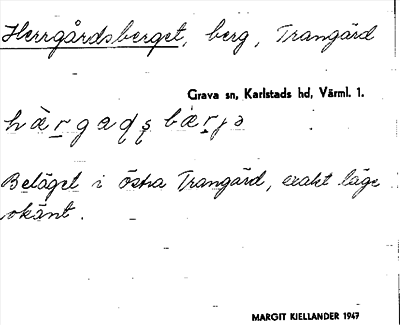 Herrgårdsberget, berg, Trangärd
Grava sn, Karlstads hd, Värml. 1.
Beläget i östra Trangärd, exakt läge
okänt.
MARGIT KJELLANDER 1947